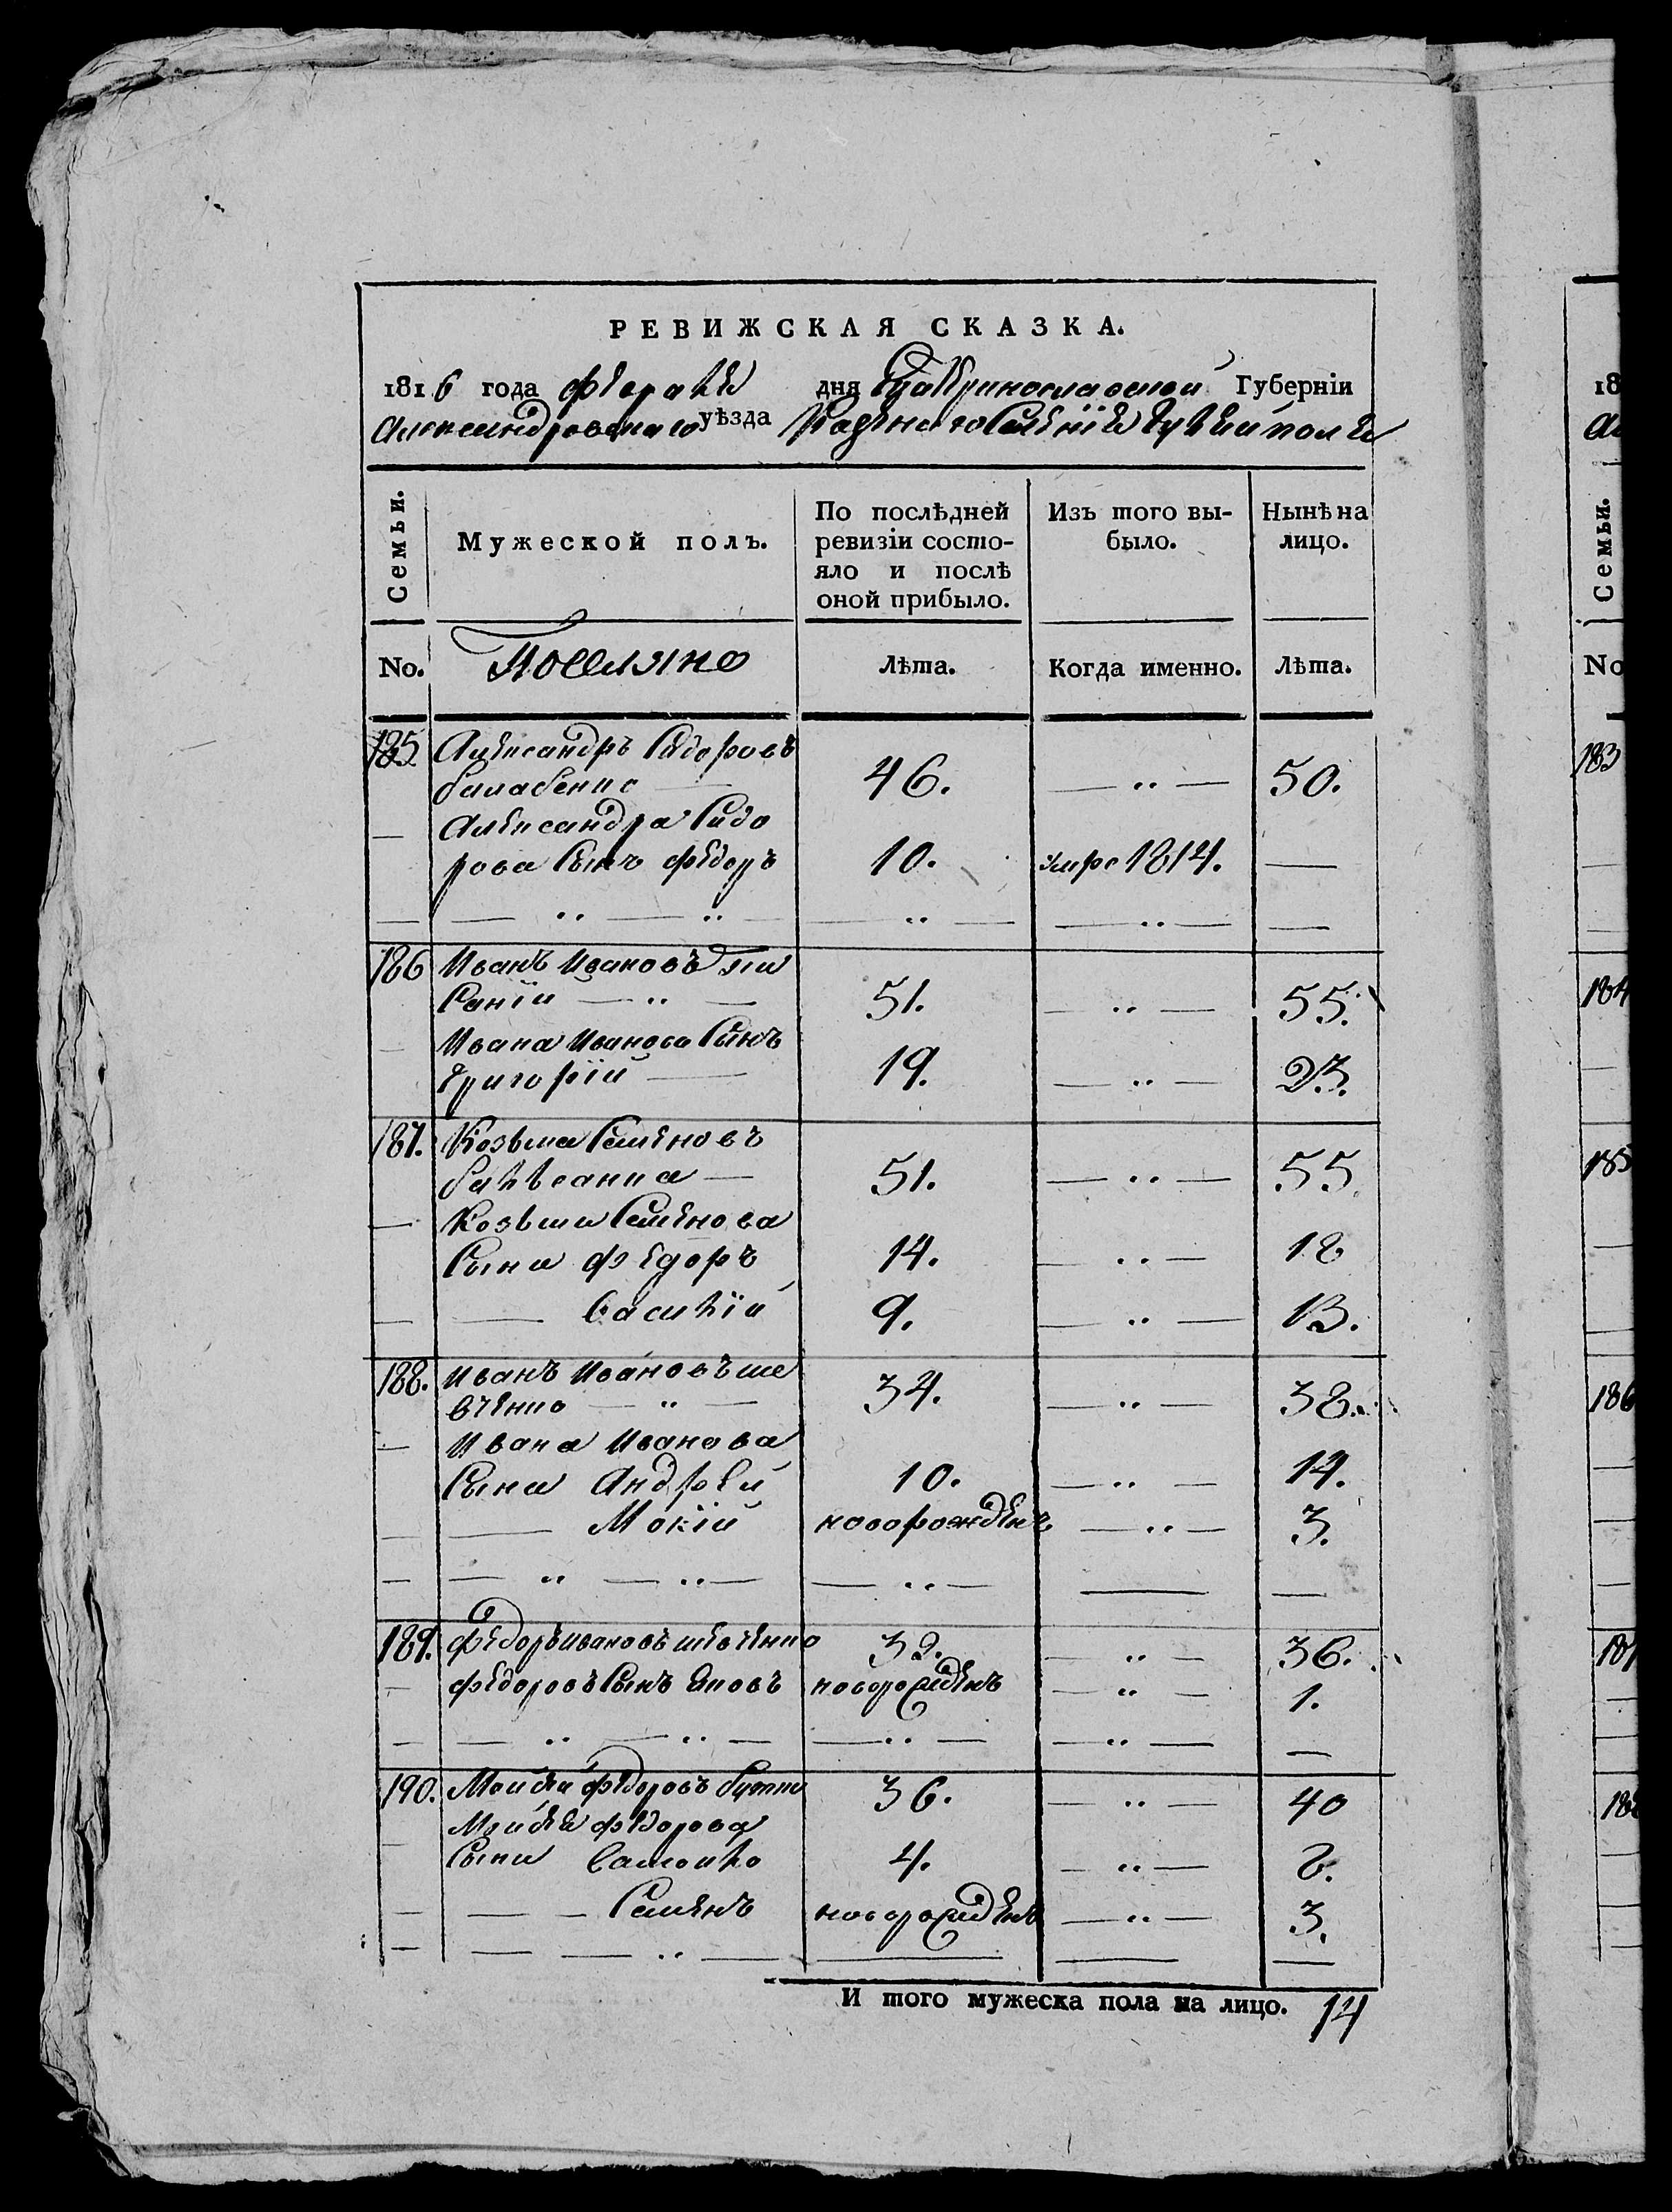 РЕВИЖСКАЯ СКАЗКА.
1816 года февраля дня Екатеринославской Губернїи
Александровскаго уѣзда Казеннаго Селенїя Гуляйполя
Семьи.
Мужеской полъ.
По послѣдней ревизїи состояло и послѣ оной прибыло.
Изъ того выбыло.
Нынѣ на лицо.
No.
Поселяно
Лѣта.
Когда именно.
Лѣта.
185. Александръ Сидоровъ
балабенко — 46. — „ — 50.
— Александра Сидо
рова Сынъ Федоръ 10. умре 1814. —
186 Иванъ Ивановъ
— „ — 51. — „ — 55.
— Ивана Иванова Сынъ
Григорїй — 19. — „ — 23.
187. Козьма Семеновъ
— 51. — „ — 55
— Козьми Семенова
Сыни Федоръ 14. — „ — 18
— — Василїй 9. — „ — 13.
188. Иванъ Ивановъ ше
вченко — „ — 34. — „ — 38.
— Ивана Иванова
Сыни Андрей 10. — „ — 14.
— — Мокїй новорожденъ — „ — 3.
189. Федоръ Ивановъ шевченко 32. — „ — 36.
— Федоровъ Сынъ Яковъ новорожденъ — „ — 1.
190. Моисей Федоровъ 36. — „ — 40
— Моисея Федорова
Сыни Самойло 4. — „ — 8.
— — Семенъ новорожденъ — „ — 3.
И того мужеска пола на лицо. 14
18
Семьи.
No
183
184
185
186
187
188